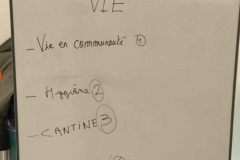 VIE
- Vie en communauté 4
- Hygiène 2
- CANTINE 3